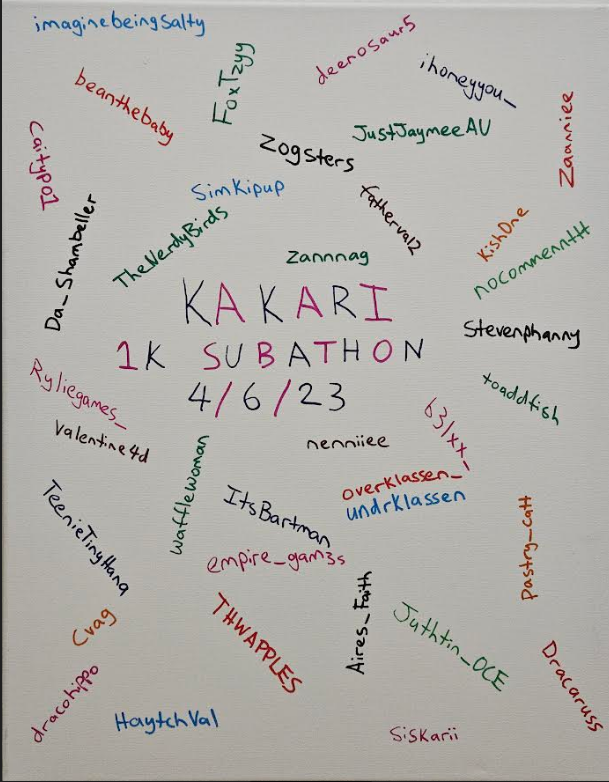 imaginebeingsalty
deenosaur5
FoxTzyy
ihoneyyou_
beanthebaby
Zaanniee
JustJaymeeAU
Zogsters
SimKipup
fatherval2
KishOne
TheNerdyBirds
Da_Shambeller
nocommenntt
zannnag
KAKARI
1K SUBATHON
4/6/23
Stevenphanny
Ryliegames_
toaddfish
Valentine4d
nenniiee
wafflewoman
overklassen_
undrklassen
TeenieTinyHana
ItsBartman
Pastry_catt
empire_gam3s
Cvag
THWAPPLES
Aires_Faith
Juthtin_OCE
Dracaruss
dracohippo
HaytchVal
Siskarii